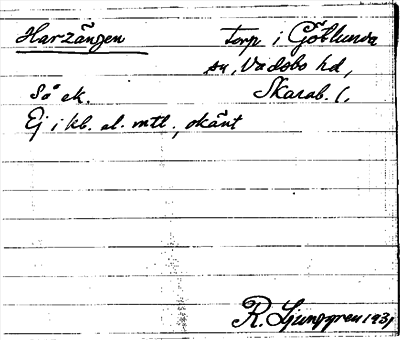 Harzängen torp i Götlunda
sn, Vadsbo hd,
Så ek. Skarab. l.
Ej i kb. el. mtl., okänt
R. Ljunggren 1931